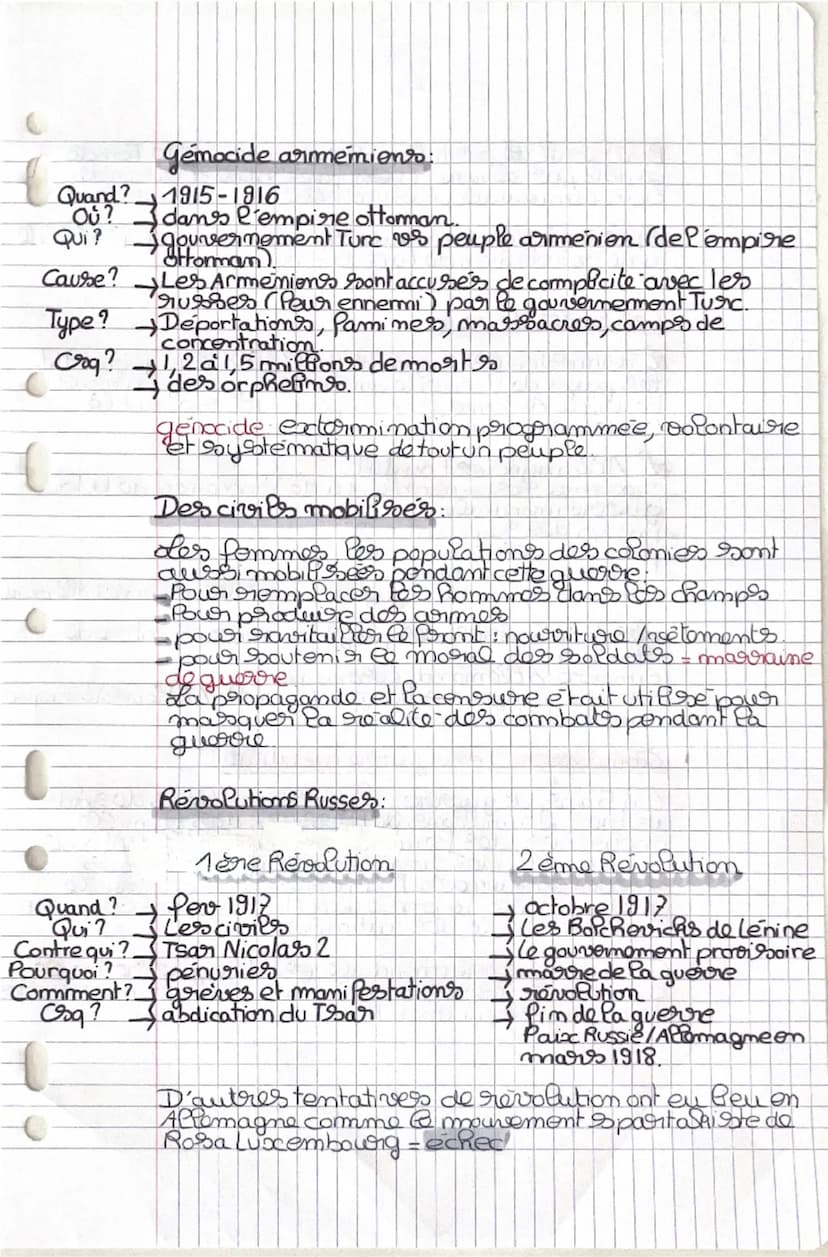 Génocide arméniens:
Quand? → 1915-1916
Où? → dans l'empire ottoman.
Qui? → gouvernement Turc vs peuple arménien (de l'empire
ottoman).
Cause? → Les Arméniens sont accusés de complicité avec les
russes (leur ennemi) par le gouvernement Turc.
Type? → Déportations, famines, massacres, camps de
concentration.
Csq? → 1,2 à 1,5 millions de morts
→ des orphelins.
génocide extermination programmée, volontaire
et systématique de tout un peuple.
Des civils mobilisés:
Les femmes, les populations des colonies sont
aussi mobilisées pendant cette guerre:
- Pour remplacer les hommes dans les champs
- Pour produire des armes
- pour ravitailler le front: nourriture / vêtements.
- pour soutenir le moral des soldats = marraine
de guerre
La propagande et la censure était utilisé pour
masquer la réalité des combats pendant la
guerre.
Révolutions Russes:
1ère Révolution 2ème Révolution
Quand? → fev 1917 → octobre 1917
Qui? → Les civils → Les Bolcheviks de Lénine
Contre qui? → Tsar Nicolas 2 → Le gouvernement provisoire
Pourquoi? → pénuries → marre de la guerre
Comment? → grèves et manifestations → révolution
Csq? → abdication du Tsar → fin de la guerre
Paix Russie/Allemagne en
mars 1918.
D'autres tentatives de révolution ont eu lieu en
Allemagne comme le mouvement spartakiste de
Rosa Luxembourg = échec